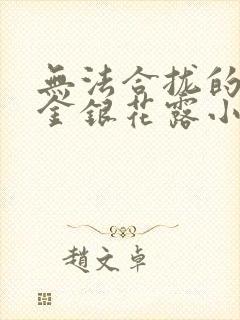 無法合拢的
金銀花露小
趙文卓